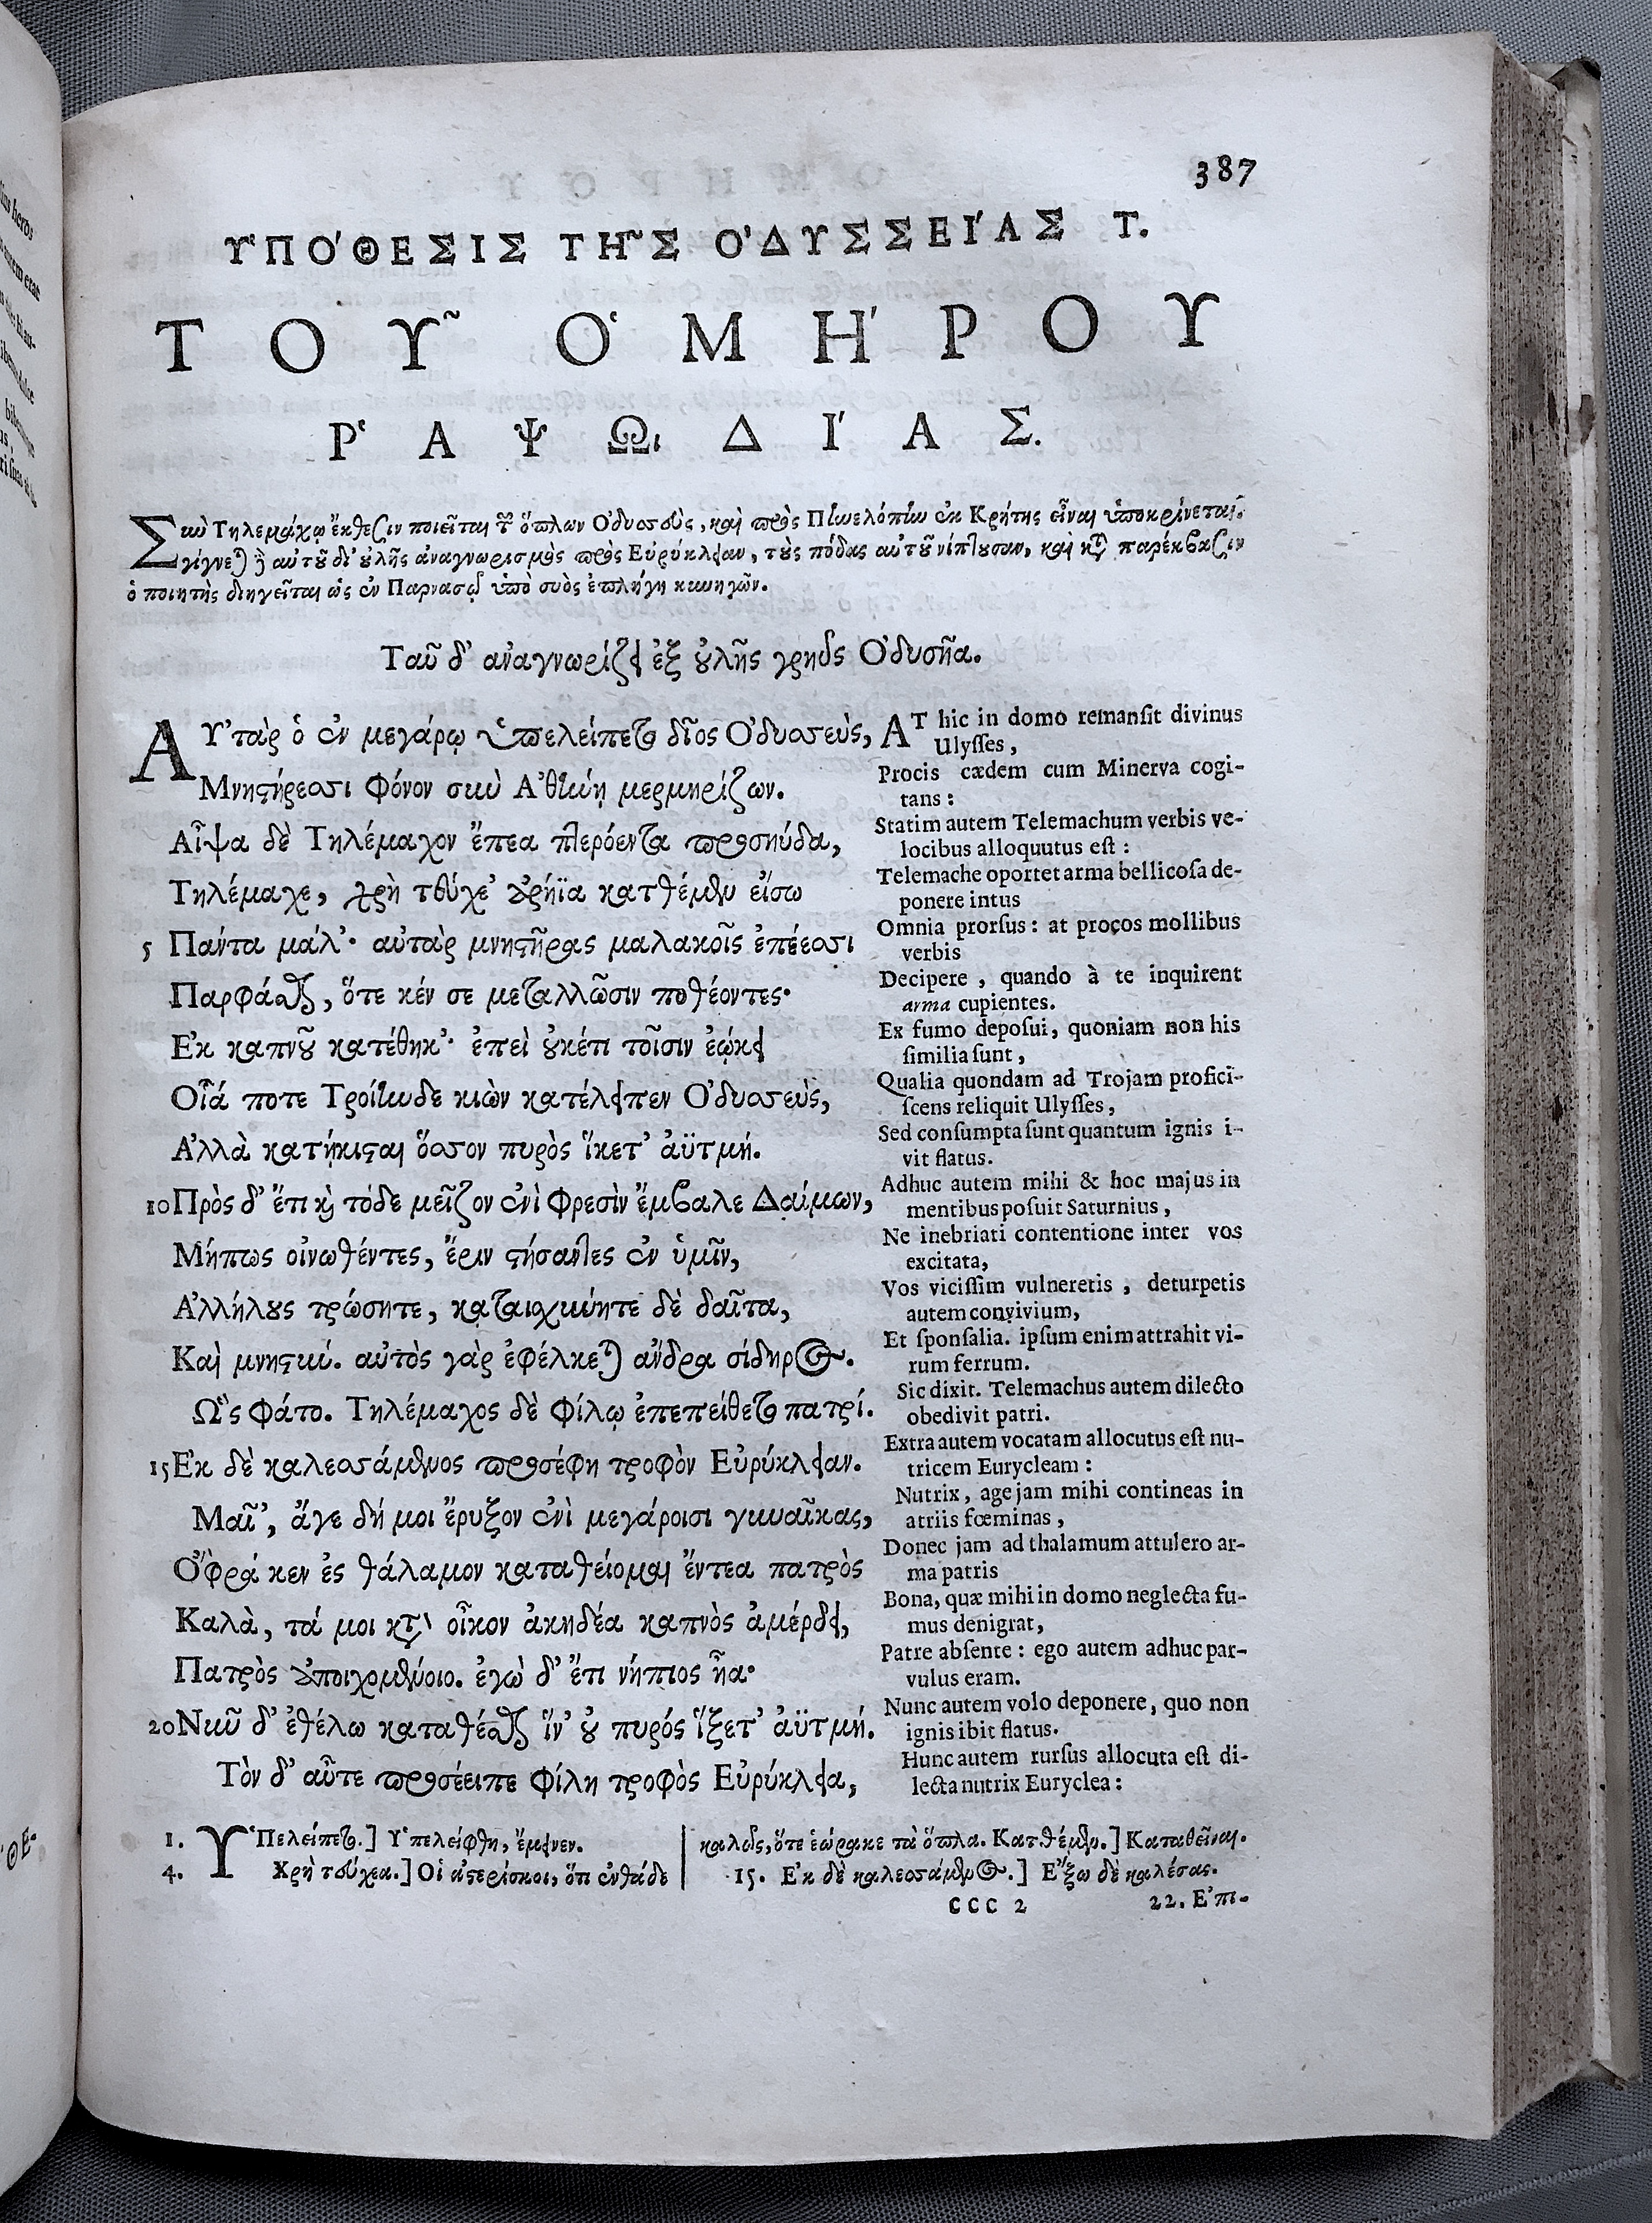 387
ΥΠΟΘΕΣΙΣ ΤΗΣ ΟΔΥΣΣΕΙΑΣ Τ.
ΤΟΥ͂ ὉΜΗΡΟΥ
ῬΑΨΩΙΔΙΑΣ.
Σὺν Τηλεμάχῳ ἔκθεσιν ποιεῖται τῶν ὅπλων Ὀδυσσοὺς, καὶ πρὸς Πηνελόπην ἐκ Κρήτης εἶναι ὑποκρίνεται.
γίγνεται δὲ αὐτοῦ δι' οὐλῆς ἀναγνωρισμὸς πρὸς Εὐρύκλειαν, τοὺς πόδας αὐτοῦ νίπτουσαν, καὶ κατὰ παρέκβασιν
ὁ ποιητὴς διηγεῖται ὡς ἐν Παρνασῷ ὑπὸ συὸς ἐπλήγη κυνηγῶν.
Ταῦ δ' ἀναγνωρίζει ἐξ οὐλῆς γρηῢς Ὀδυσῆα.
ΑΥ᾿τὰρ ὁ ἐν μεγάρῳ ὑπελείπετο δῖος Ὀδυσσεὺς,
Μνηστήρεσσι φόνον σὺν Ἀθήνῃ μερμηρίζων.
Αἶψα δὲ Τηλέμαχον ἔπεα πτερόεντα προσηύδα,
Τηλέμαχε, χρὴ τεύχε' ἀρήϊα κατθέμεν εἴσω
5 Πάντα μάλ'· αὐτὰρ μνηστῆρας μαλακοῖς ἐπέεσσι
Παρφάσθαι, ὅτε κέν σε μεταλλῶσιν ποθέοντες·
Ἐκ καπνοῦ κατέθηκ'· ἐπεὶ οὐκέτι τοῖσιν ἐῴκει
Οἷά ποτε Τροίηνδε κιὼν κατέλειπεν Ὀδυσσεὺς,
Ἀλλὰ κατῄκισται ὅσσον πυρὸς ἵκετ' ἀϋτμή.
10 Πρὸς δ' ἔτι καὶ τόδε μεῖζον ἐνὶ φρεσὶν ἔμβαλε Δαίμων,
Μήπως οἰνωθέντες, ἔριν στήσαντες ἐν ὑμῖν,
Ἀλλήλους τρώσητε, καταισχύνητε δὲ δαῖτα,
Καὶ μνηστύν. αὐτὸς γὰρ ἐφέλκεται ἄνδρα σίδηρος.
Ὣς φάτο. Τηλέμαχος δὲ φίλῳ ἐπεπείθετο πατρί.
15 Ἐκ δὲ καλεσσάμενος προσέφη τροφὸν Εὐρύκλειαν.
Μαῖ', ἄγε δή μοι ἔρυξον ἐνὶ μεγάροισι γυναῖκας,
Ὄφρά κεν ἐς θάλαμον καταθείομαι ἔντεα πατρὸς
Καλὰ, τά μοι κατ' οἶκον ἀκηδέα καπνὸς ἀμέρδει,
Πατρὸς ἀποιχομένοιο. ἐγὼ δ' ἔτι νήπιος ἦα·
20 Νῦν δ' ἐθέλω καταθέσθαι ἵν' οὐ πυρός ἵξετ' ἀϋτμή.
Τὸν δ' αὖτε προσέειπε φίλη τροφὸς Εὐρύκλεια,
AT hic in domo remansit divinus
Ulysses,
Procis cædem cum Minerva cogi-
tans:
Statim autem Telemachum verbis ve-
locibus alloquutus est:
Telemache oportet arma bellicosa de-
ponere intus
Omnia prorsus: at procos mollibus
verbis
Decipere, quando à te inquirent
arma cupientes.
Ex fumo deposui, quoniam non his
similia sunt,
Qualia quondam ad Trojam profici-
scens reliquit Ulysses,
Sed consumpta sunt quantum ignis i-
vit flatus.
Adhuc autem mihi & hoc majus in
mentibus posuit Saturnius,
Ne inebriati contentione inter vos
excitata,
Vos vicissim vulneretis, deturpetis
autem convivium,
Et sponsalia. ipsum enim attrahit vi-
rum ferrum.
Sic dixit. Telemachus autem dilecto
obedivit patri.
Extra autem vocatam allocutus est nu-
tricem Eurycleam:
Nutrix, age jam mihi contineas in
atriis fœminas,
Donec jam ad thalamum attulero ar-
ma patris
Bona, quæ mihi in domo neglecta fu-
mus denigrat,
Patre absente: ego autem adhuc par-
vulus eram.
Nunc autem volo deponere, quo non
ignis ibit flatus.
Hunc autem rursus allocuta est di-
lecta nutrix Euryclea:
1. Ὑπελείπετο.] Ὑπελείφθη, ἔμεινεν.
4. Χρὴ τεύχεα.] Οἱ ἀστερίσκοι, ὅτι ἐνθάδε
καλῶς, ὅτε ἑώρακε τὰ ὅπλα. Κατθέμεν.] Καταθεῖναι.
15. Ἐκ δὲ καλεσσάμενος.] Ἔξω δὲ καλέσας.
CCC 2 22. Ἐπι-